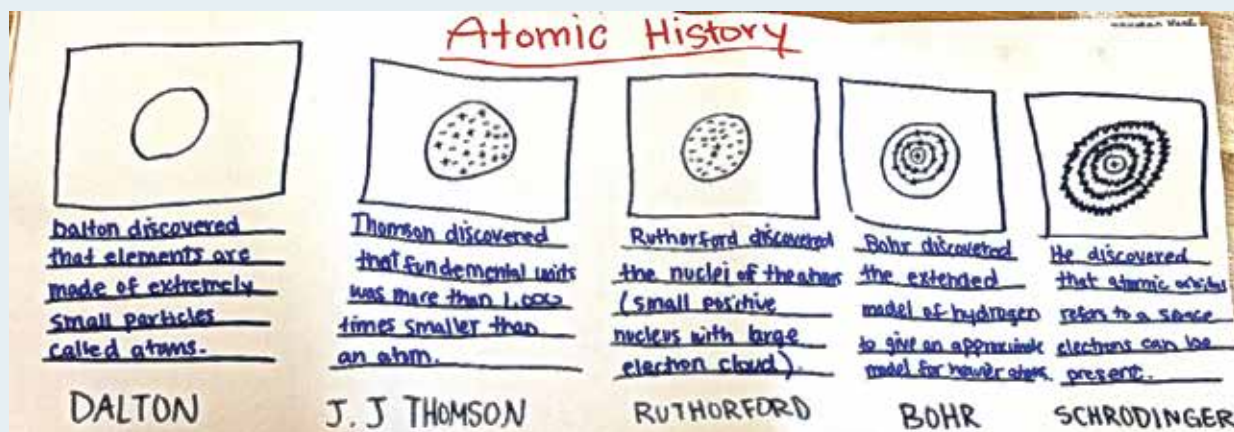 Atomic History
Dalton discovered
that elements are
made of extremely
small particles
called atoms.
DALTON
Thomson discovered
that fundemental units
was more than 1,000
times smaller than
an atom.
J. J THOMSON
Rutherford discovered
the nuclei of the atoms
(small positive
nucleus with large
electron cloud).
RUTHORFORD
Bohr discovered
the extended
model of hydrogen
to give an approximate
model for atoms.
BOHR
He discovered
that atomic orbital
refers to a space
electrons can be
present.
SCHRODINGER